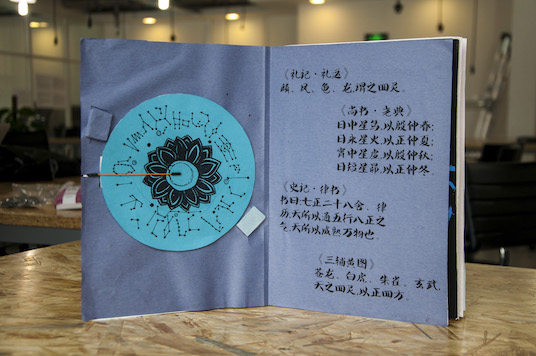 《礼记·礼运》
麟、凤、龟、龙,谓之四灵。
《尚书·尧典》
日中星鸟,以殷仲春;
日永星火,以正仲夏;
宵中星虚,以殷仲秋;
日短星昴,以正仲冬
《史记·律书》
书曰,七正二十八舍、律
历,天所以通五行八正之
气,天所以成熟万物也。
《三辅黄图》
苍龙、白虎、朱雀、玄武,
天之四灵,以正四方。